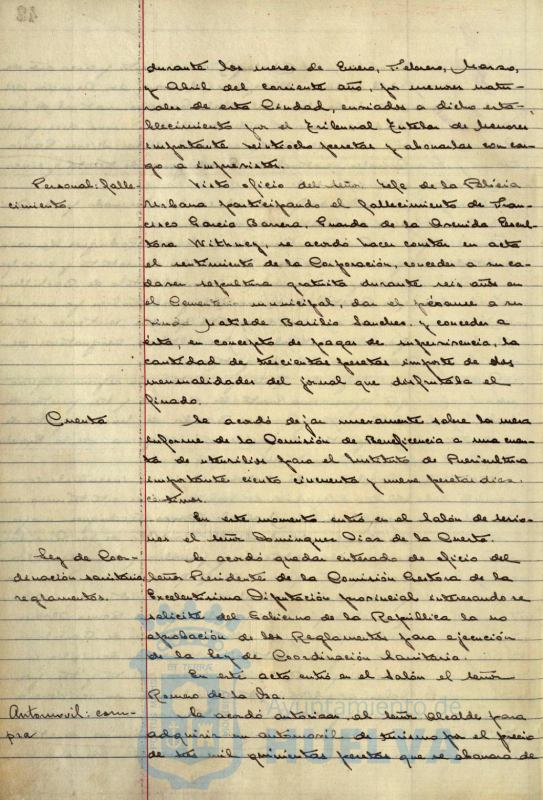 durante los meses de Enero, Febrero, Marzo,
y Abril del corriente año, por menores natu-
rales de esta Ciudad, enviados a dicho esta-
blecimiento por el Tribunal Tutelar de Menores
importante veintiocho pesetas y abonarlas con car-
go a imprevistos.
Personal: falle-
cimiento.
Visto oficio del señor Jefe de la Policía
Urbana participando el fallecimiento de Fran-
cisco García Barrera, Guarda de la Avenida Escul-
tora Withney, se acordó hacer constar en acta
el sentimiento de la Corporación, conceder a su ca-
daver sepultura gratuita durante seis años en
el Cementerio municipal, dar el pésame a su
viuda Matilde Basilio Sanchez, y conceder a
ésta, en concepto de pagas de supervivencia, la
cantidad de trescientas pesetas importe de dos
mensualidades del jornal que disfrutaba el
finado.
Cuenta
Se acordó dejar nuevamente sobre la mesa
informe de la Comisión de Beneficencia a una cuen-
ta de utensilios para el Instituto de Puericultura
importante ciento cincuenta y nueve pesetas diez
céntimos.
En este momento entró en el Salón de sesio-
nes el señor Dominguez Diaz de la Cuesta.
Ley de Coor-
dinación sanitaria
reglamentos.
Se acordó quedar enterado de oficio del
señor Presidente de la Comisión Gestora de la
Excelentisima Diputación provincial interesando se
solicite del Gobierno de la República la no
aprobación de los Reglamentos para ejecución
de la Ley de Coordinación Sanitaria.
En este acto entró en el Salón el señor
Romero de la Osa.
Automovil: com-
pra
Se acordó autorizar al señor Alcalde para
adquirir un automovil de turismo por el precio
de tres mil quinientas pesetas que se abonara de
Ayuntamiento de
HUELVA